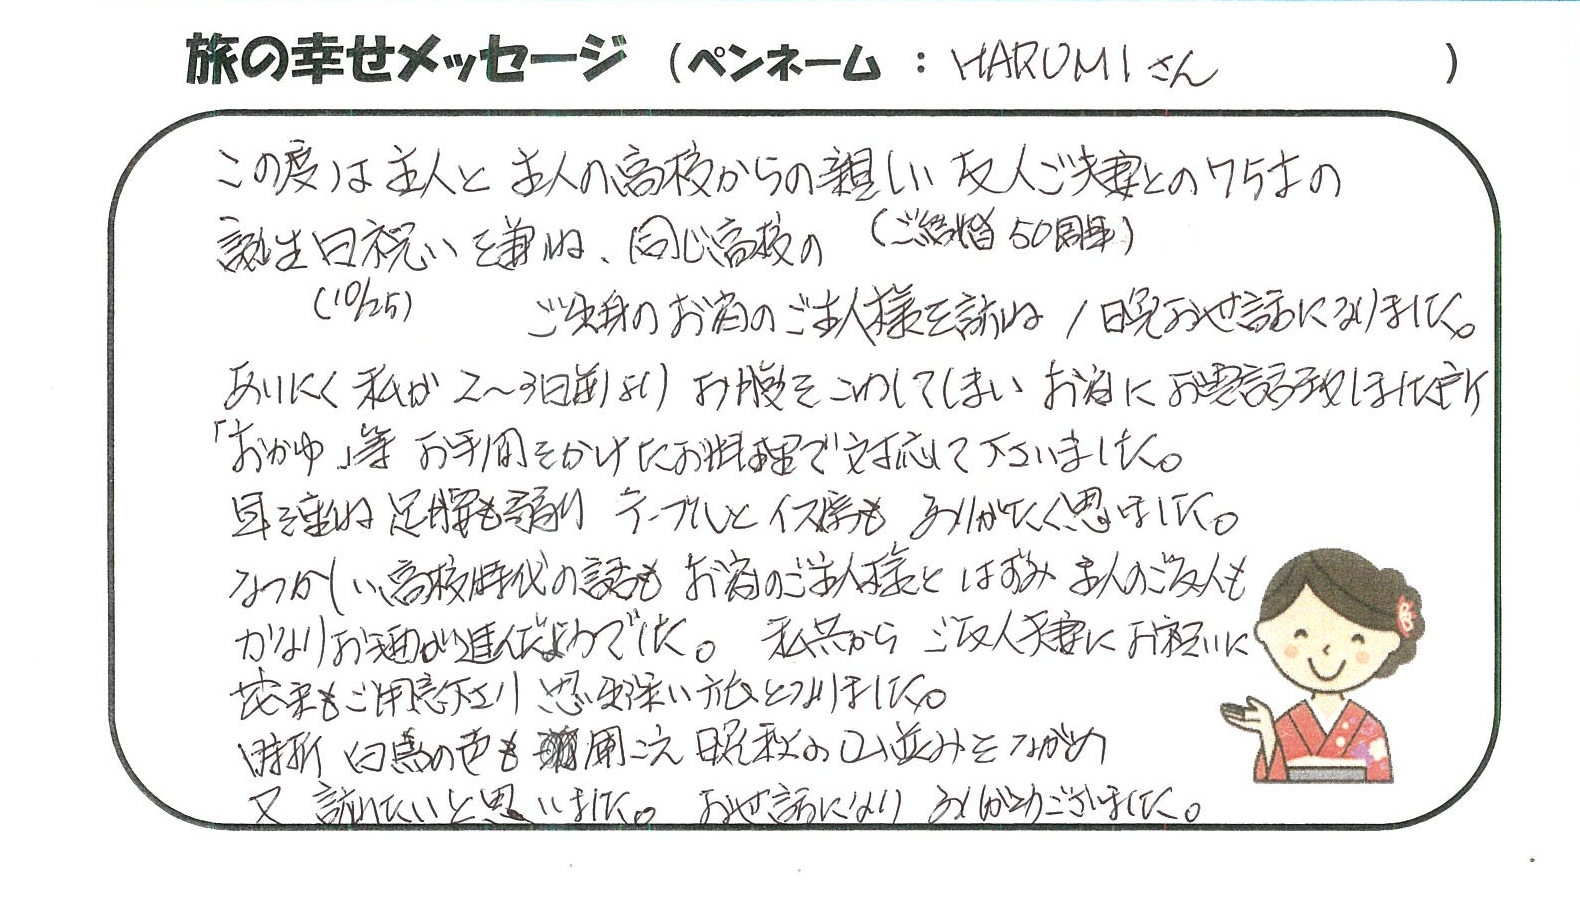 旅の幸せメッセージ (ペンネーム : HARUMIさん )
この度は主人と主人の高校からの親しい友人ご夫妻との75才の
誕生日祝いを兼ね、同じ高校の (ご結婚50周年)
(10/25) ご出身のお宿のご主人様を訪ね 1晩お世話になりました。
あいにく私が2〜3日前より お腹をこわしてしまい お宿にお電話致しました所
「おかゆ」等 お手間をかけたお料理で対応して下さいました。
耳を重ね 足腰も弱り テーブルとイス席も ありがたく思いました。
なつかしい高校時代の話も お宿のご主人様と はずみ 主人のご友人も
かなりお酒が進んだようでした。 私共から ご友人夫妻にお祝いに
花束もご用意下さり 思い出深い旅となりました。
時折 白鳥の声も 聞こえ 晩秋の山並みをながめ
又 訪れたいと思いました。 お世話になり ありがとうございました。